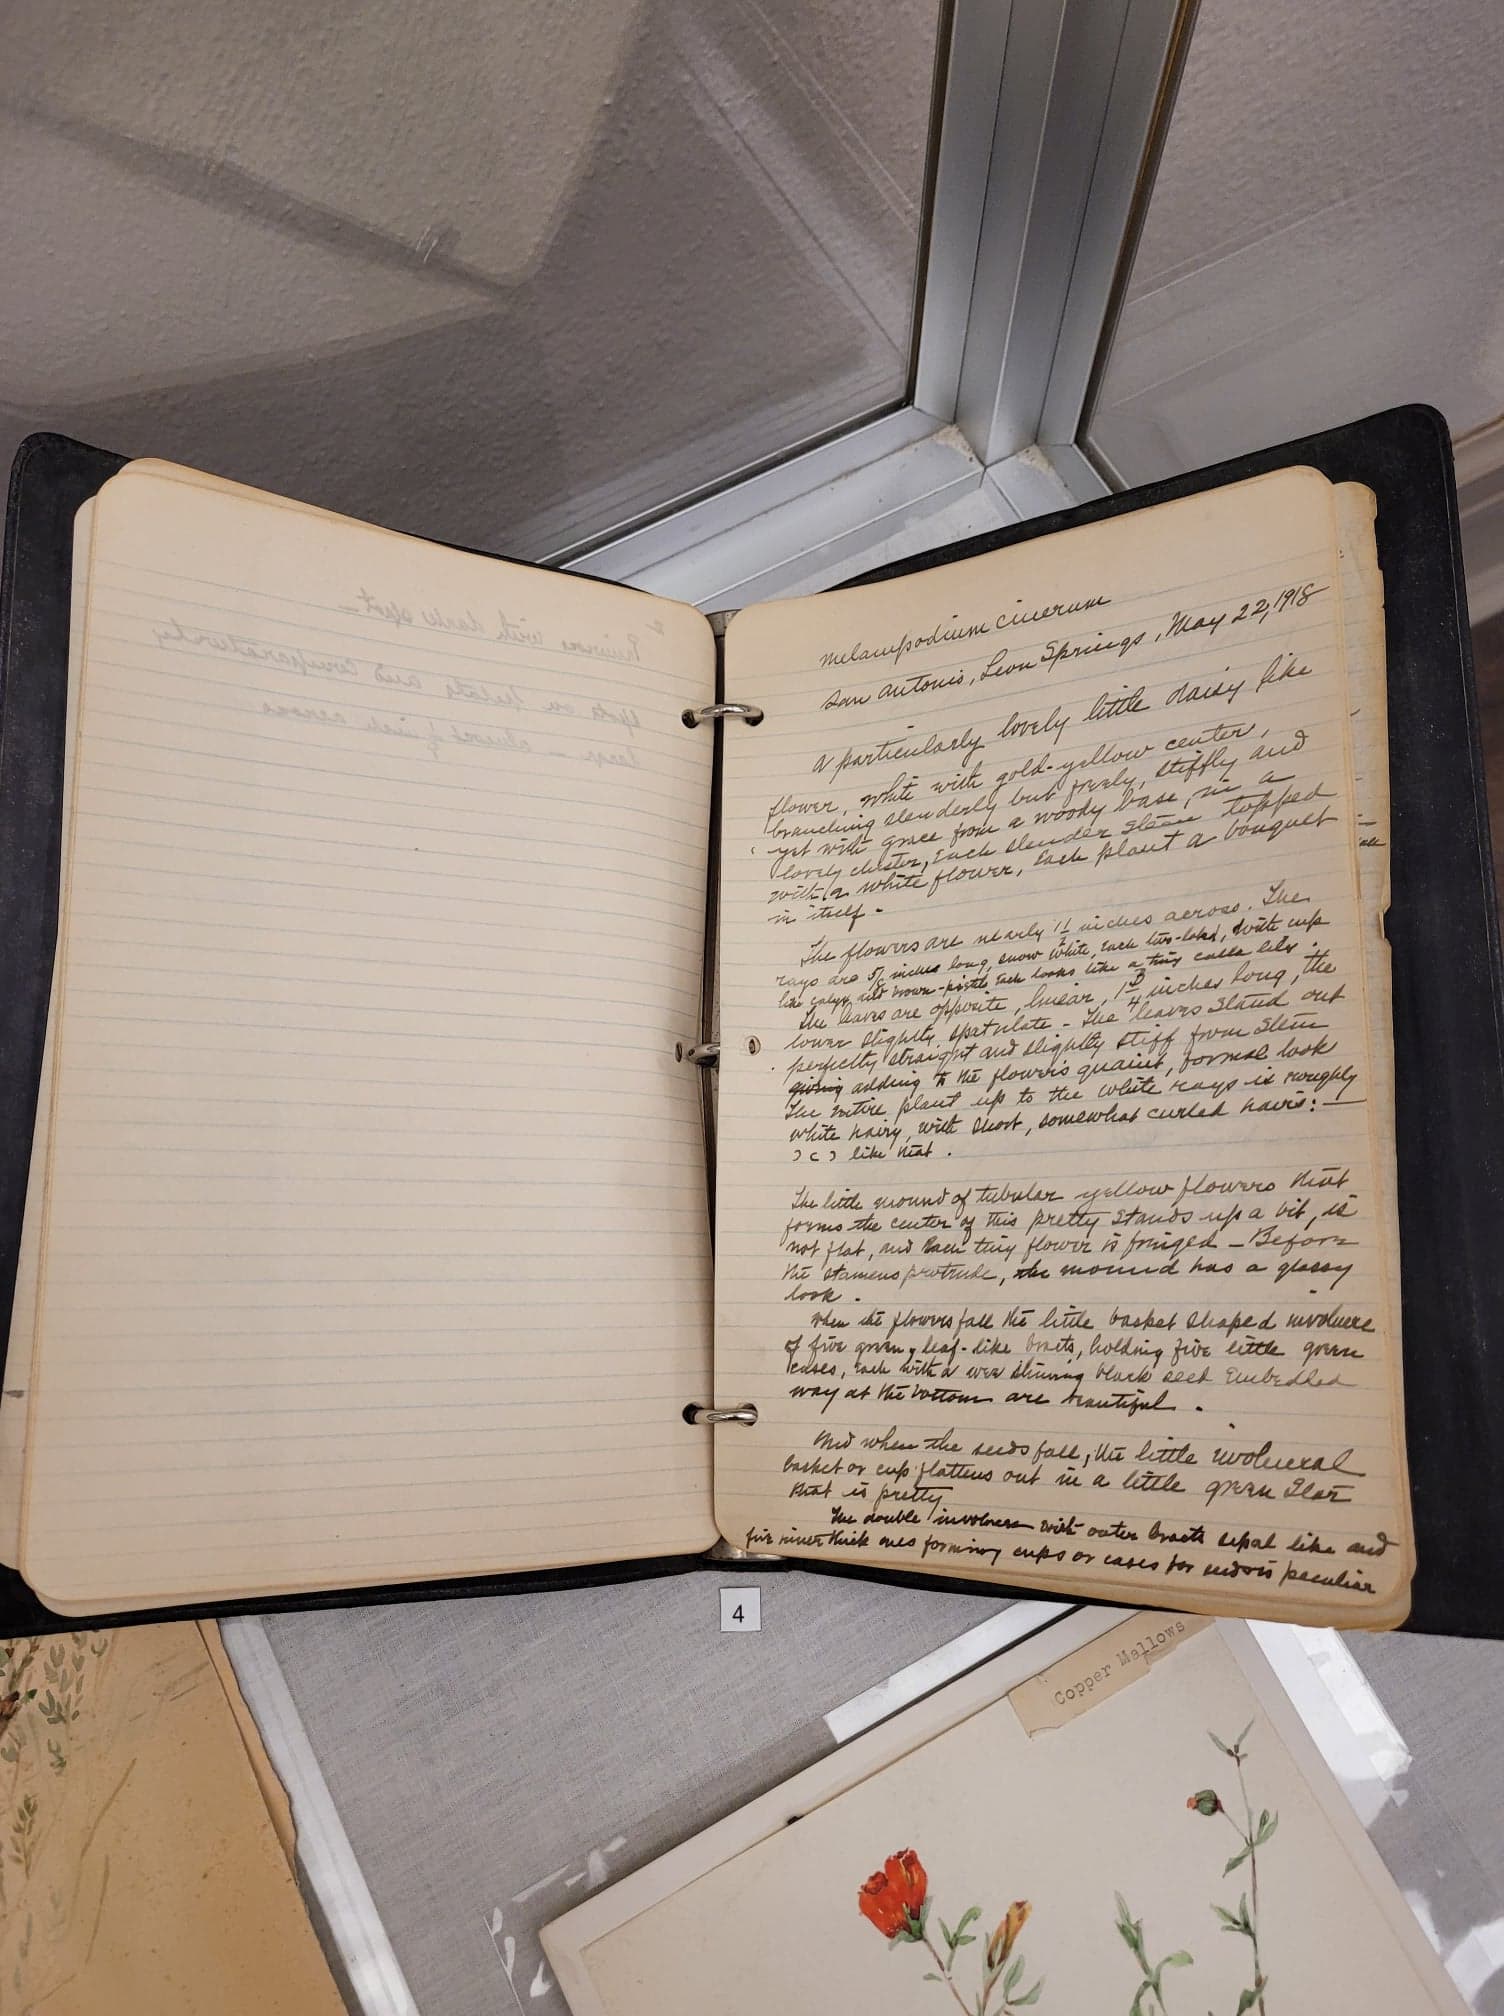 melampodium cinerum
San Antonio, Leon Springs, May 22, 1918
A particularly lovely little daisy like
flower, white with gold-yellow center,
branching slenderly but freely, stiffly and
yet with grace from a woody base, in a
lovely cluster, each slender stem topped
with a white flower, Each plant a bouquet
in itself -
The flowers are nearly 1½ inches across. The
rays are 5/8 inches long, snow white, each two-lobed, with cup
like calyx, and brown-pistil, each looks like a tiny calla lily.
The leaves are opposite, linear, 1 3/4 inches long, the
lower slightly spatulate - The leaves stand out
perfectly straight and slightly stiff from stem
giving adding to the flower's quaint, formal look
The entire plant up to the white rays is roughly
white hairy, with short, somewhat curled hairs: —
like that.
The little mound of tubular yellow flowers that
forms the center of this pretty stands up a bit, is
not flat, and Each tiny flower is fringed - Before
the stamens protrude, the mound has a glassy
look.
When the flowers fall the little basket shaped involucre
of five green, leaf-like bracts, holding five little green
cases, each with a wee shining black seed Embedded
way at the bottom are beautiful.
And when the seeds fall, the little involucral
basket or cup flattens out in a little green Star
that is pretty
The double involucre with outer bracts sepal like and
five inner thick ones forming cups or cases for seeds is peculiar
4
Copper Mallows